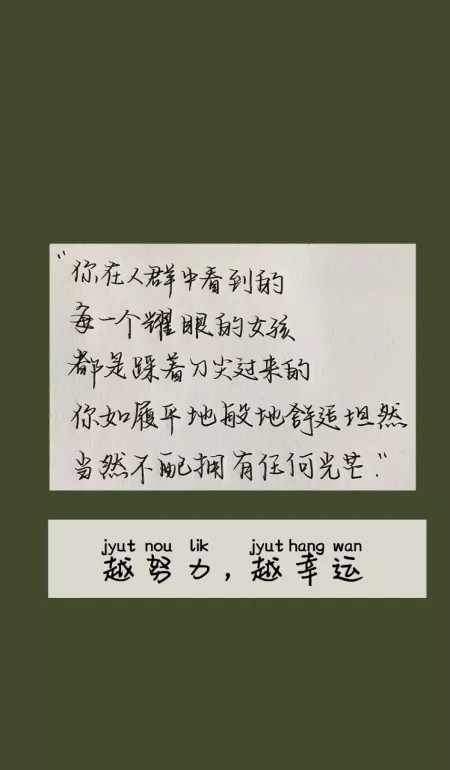 "你在人群中看到的
每一个耀眼的女孩
都是踩着刀尖过来的
你如履平地般地舒适坦然
当然不配拥有任何光芒."
jyut nou lik jyut hang wan
越努力，越幸运